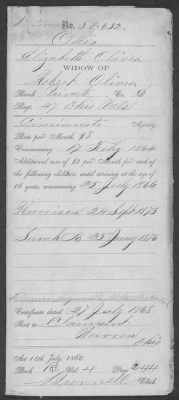 No. 57,632
Ohio
Elizabeth Oliver
WIDOW OF
Robert Oliver
Rank Private Co. D
Regt. 47 Ohio Vols
Cincinnati Agency
Rate per Month $8
Commencing 17 July 1864
Additional sum of $2 per month for each of
the following children, until arriving at the age of
16 years, commencing 25 July 1866
Harrison 24 Sept 1873
Sarah 25 1876
Certificate dated 27 July 1865
Sent to Claimant
Warren
Ohio
Act 14th July, 1862
Book B Vol. 4 Page 244
Clerk.